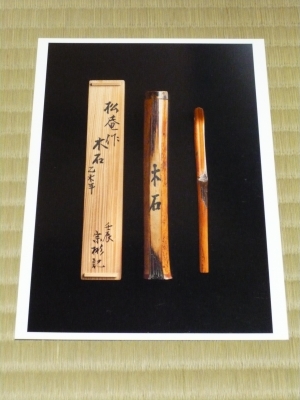 松庵作
木石
乙未年
壬辰
宗彬記
木石